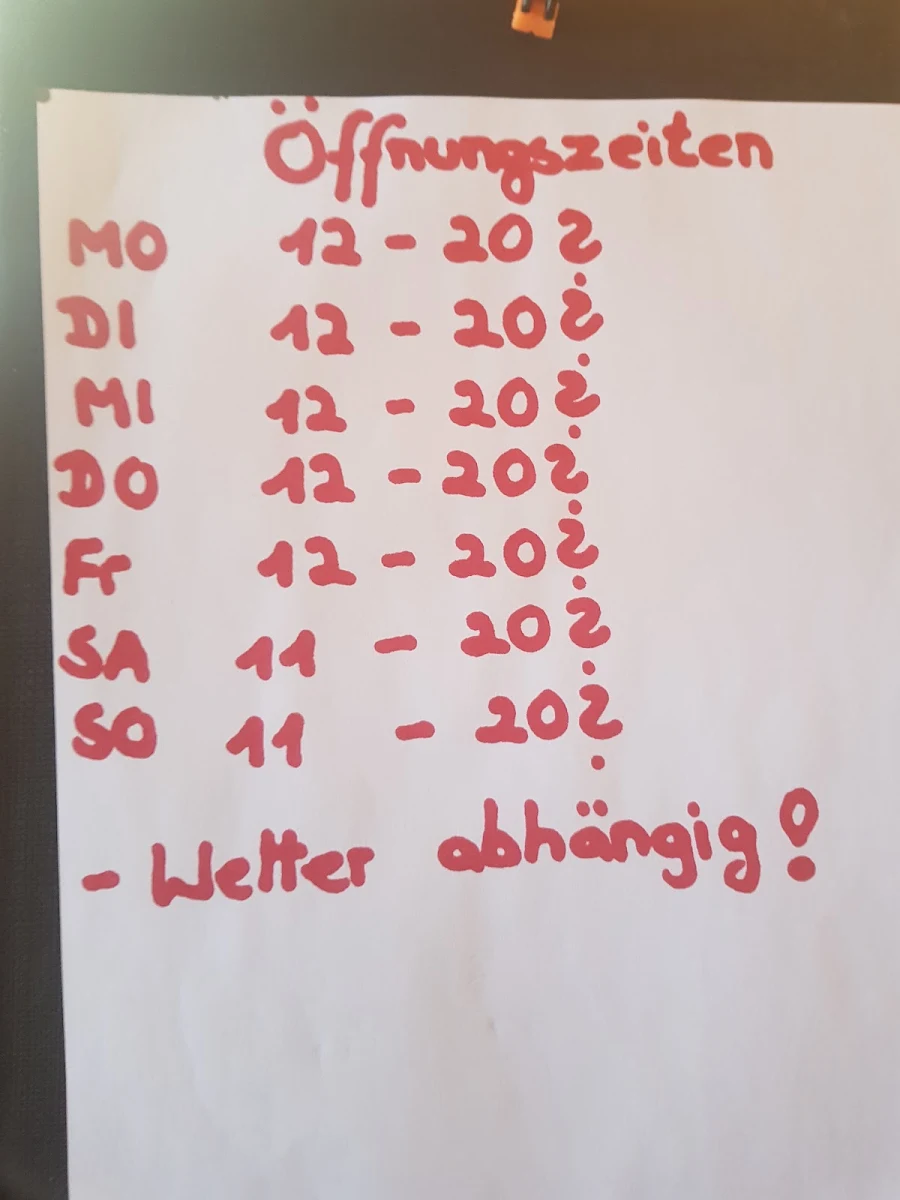 Öffnungszeiten
MO 12 - 20 ?
DI 12 - 20 ?
MI 12 - 20 ?
DO 12 - 20 ?
Fr 12 - 20 ?
SA 11 - 20 ?
SO 11 - 20 ?
- Wetter abhängig !